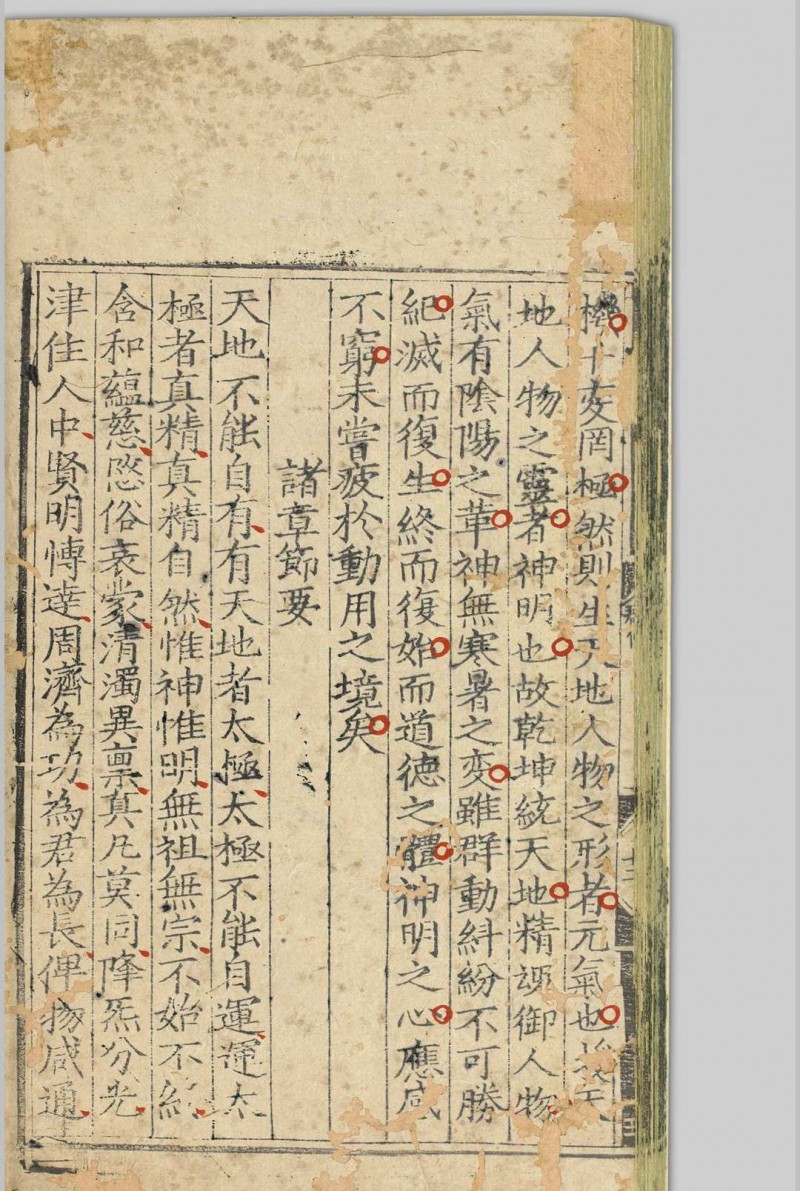 機十变罔極然則生天地人物之形者元氣也授天
地人物之靈者神明也故乾坤統天地精魂御人物
氣有陰陽之革神無寒暑之变雖群動糾紛不可勝
紀滅而復生終而復始而道德之體神明之心應感
不窮未嘗疲於動用之境矣
諸章節要
天地不能自有有天地者太極太極不能自運運太
極者真精真精自然惟神惟明無祖無宗不始不終
含和蘊慈愍俗哀蒙清濁異禀真凡莫同降炁分光
津住人中賢明愽達周濟為功為君為長俾物咸通